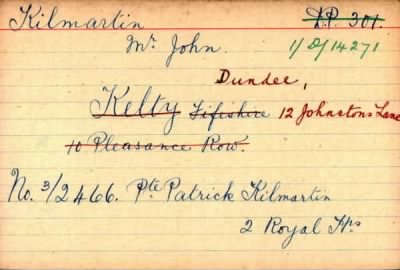 Kilmartin D.P. 301.
Mr. John. 1/D/14271
Dundee,
Kelty Fifeshire 12 Johnstons Lane
10 Pleasance Row.
No. 3/2466. Pte Patrick Kilmartin
2 Royal Hrs